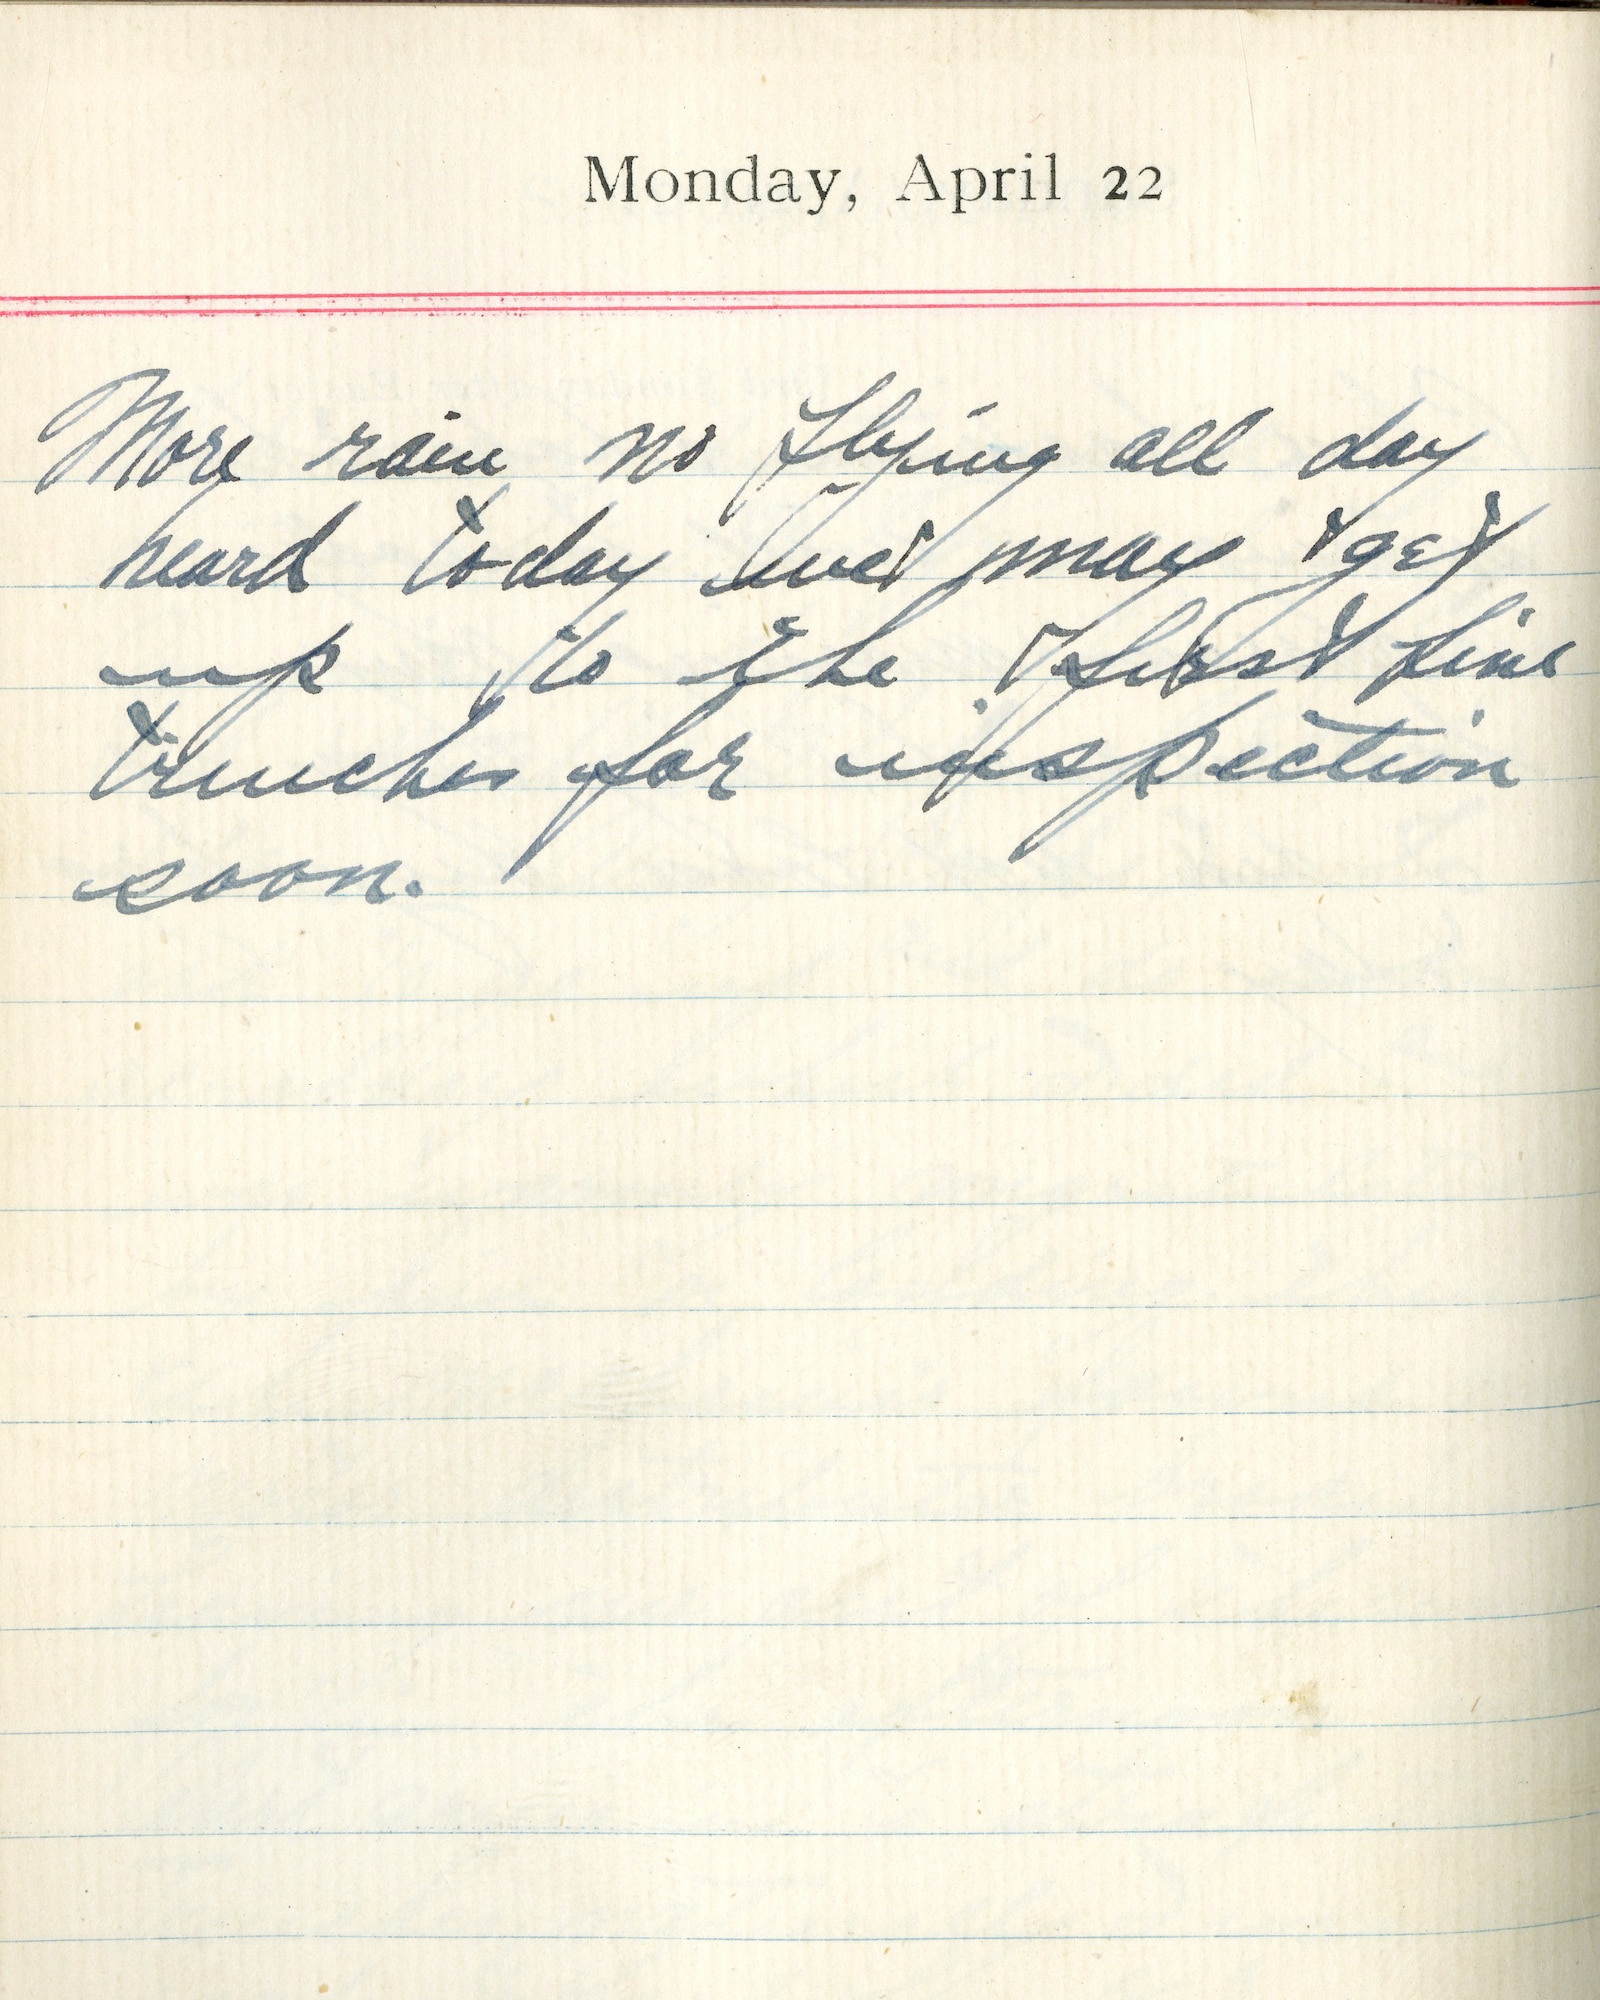 Monday, April 22
More rain no flying all day
heard today we may get
up to the first line
trenches for inspection
soon.